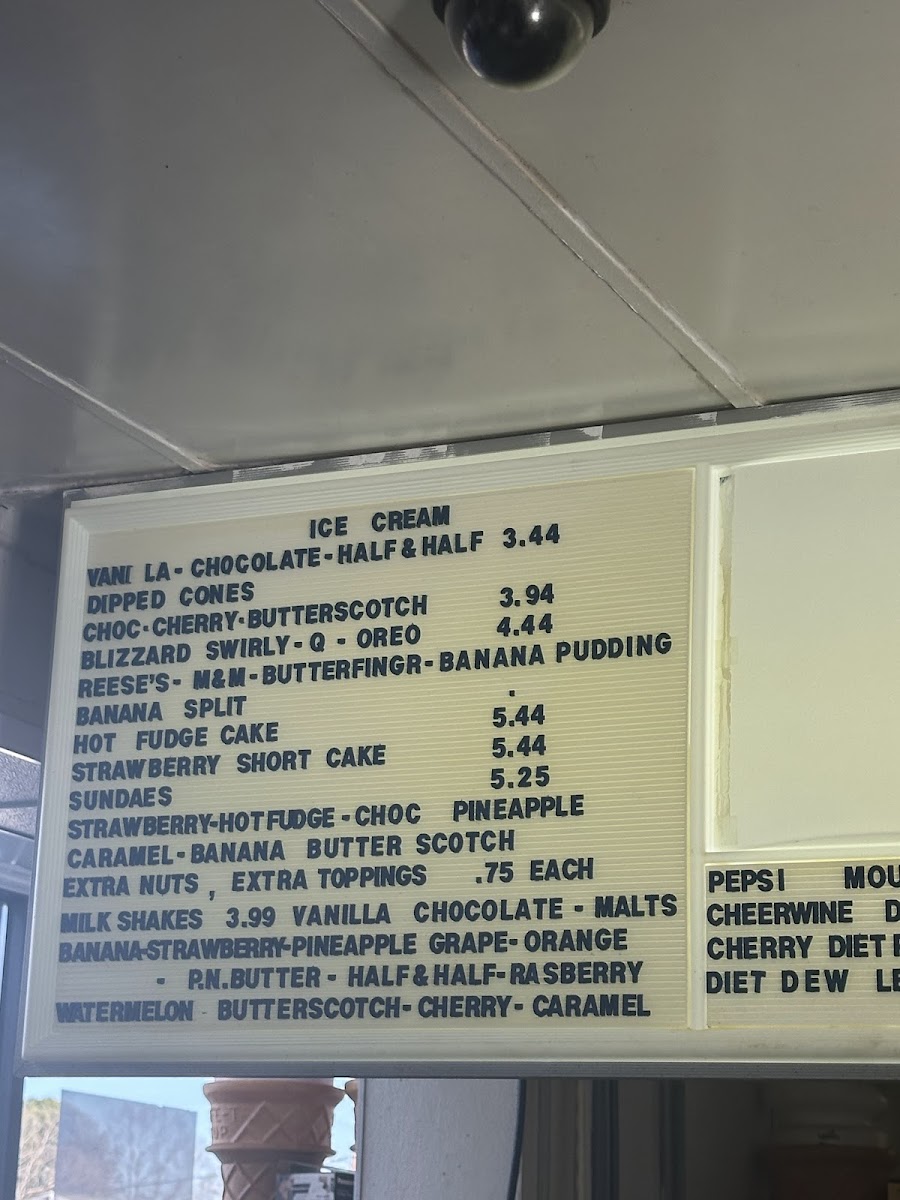 ICE CREAM
VANI LA- CHOCOLATE-HALF & HALF 3.44
DIPPED CONES
CHOC-CHERRY-BUTTERSCOTCH 3.94
BLIZZARD SWIRLY-Q - OREO 4.44
REESE'S- M&M-BUTTERFINGR-BANANA PUDDING
BANANA SPLIT .
HOT FUDGE CAKE 5.44
STRAWBERRY SHORT CAKE 5.44
SUNDAES 5.25
STRAWBERRY-HOTFUDGE-CHOC PINEAPPLE
CARAMEL-BANANA BUTTER SCOTCH
EXTRA NUTS, EXTRA TOPPINGS .75 EACH
MILK SHAKES 3.99 VANILLA CHOCOLATE - MALTS
BANANA-STRAWBERRY-PINEAPPLE GRAPE-ORANGE
- P.N.BUTTER - HALF&HALF-RASBERRY
WATERMELON - BUTTERSCOTCH-CHERRY-CARAMEL
PEPSI MOU
CHEERWINE D
CHERRY DIET
DIET DEW LE